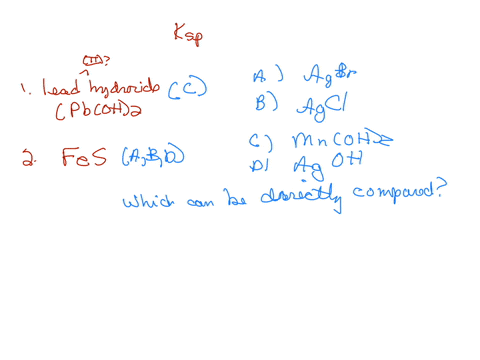 Ksp
(II)?
1. Lead hydroxide (C)
(Pb(OH)2
2. FeS (A,B,D)
A.) AgBr
B) AgCl
C) Mn(OH)2
D) AgOH
Which can be directly compared?